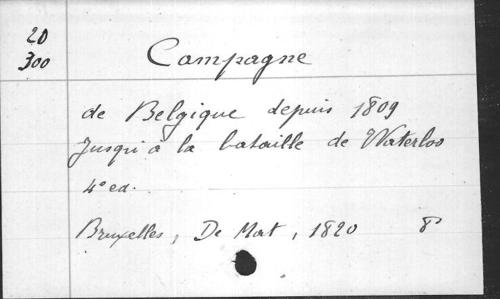 20
300
Campagne
de Belgique depuis 1809
Jusqu'à la bataille de Waterloo
4° ed.
Bruxelles, De Mat, 1820 8°